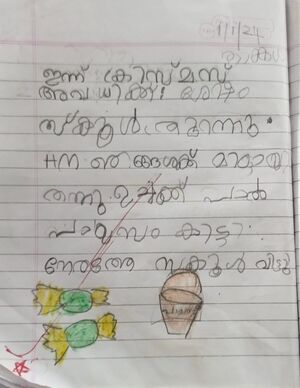 1/1/24
തിങ്കൾ
ഇന്ന് ക്രിസ്മസ്
അവധിക്ക് ശേഷം
സ്കൂൾ തുറന്നു.
HM ഞങ്ങൾക്ക് മിഠായി
തന്നു ഉച്ചക്ക് പാൽ
പായസം കിട്ടി.
നേരത്തേ സ്കൂൾ വിട്ടു